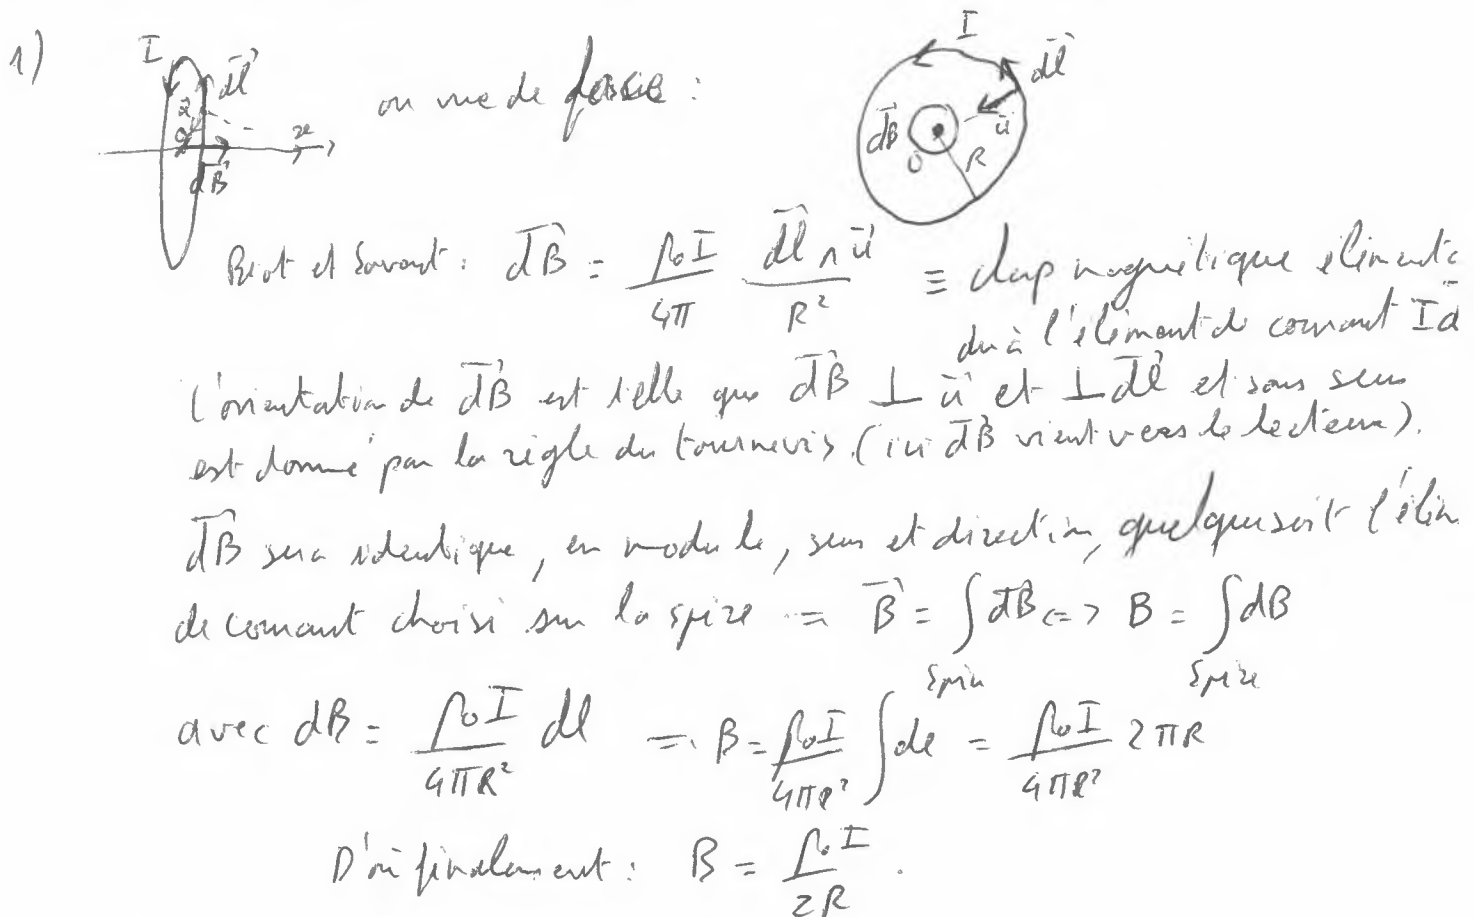 1)
I
dl
x
dB
ou vue de face :
I
dl
u
dB
O
R
Biot et Savart : dB = μ₀I/4π dl ∧ u/R² ≡ champ magnétique élémenta
du à l'élément de courant Id
L'orientation de dB est telle que dB ⊥ u et ⊥ dl et sons sens
est donné par la règle du tournevis (ici dB vient vers le lecteur).
dB sera identique, en module, sens et direction, quelquesoit l'élém
de courant choisi sur la spire ⇒ B = ∫ dB <=> B = ∫ dB
spire spire
avec dB = μ₀I/4πR² dl ⇒ B = μ₀I/4πR² ∫ dl = μ₀I/4πR² 2πR
D'où finalement : B = μ₀I/2R .